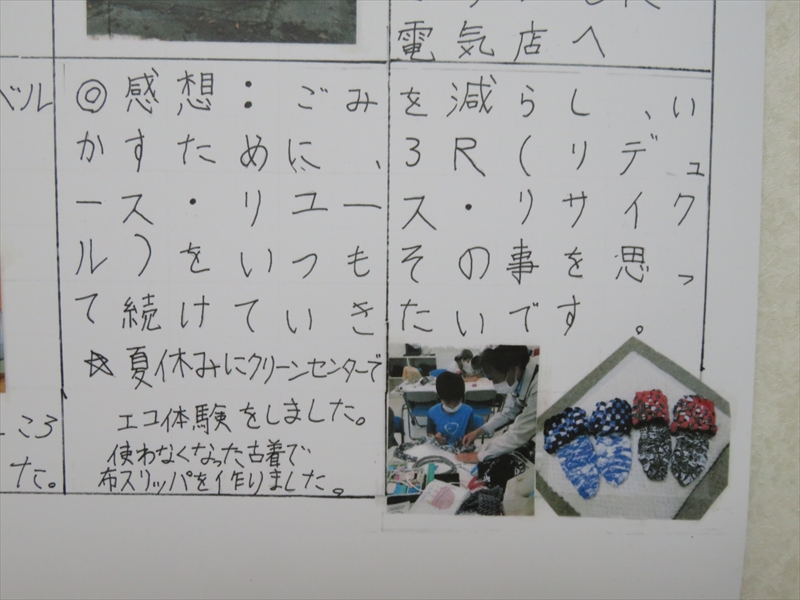 電気店へ
ベル
◎感想：ごみを減らし、い
かすために、3R(リデュ
ース・リユース・リサイク
ル)をいつもその事を思っ
て続けていきたいです。
☆夏休みにクリーンセンターで
エコ体験をしました。
使わなくなった古着で
布スリッパを作りました。
ころ
た。